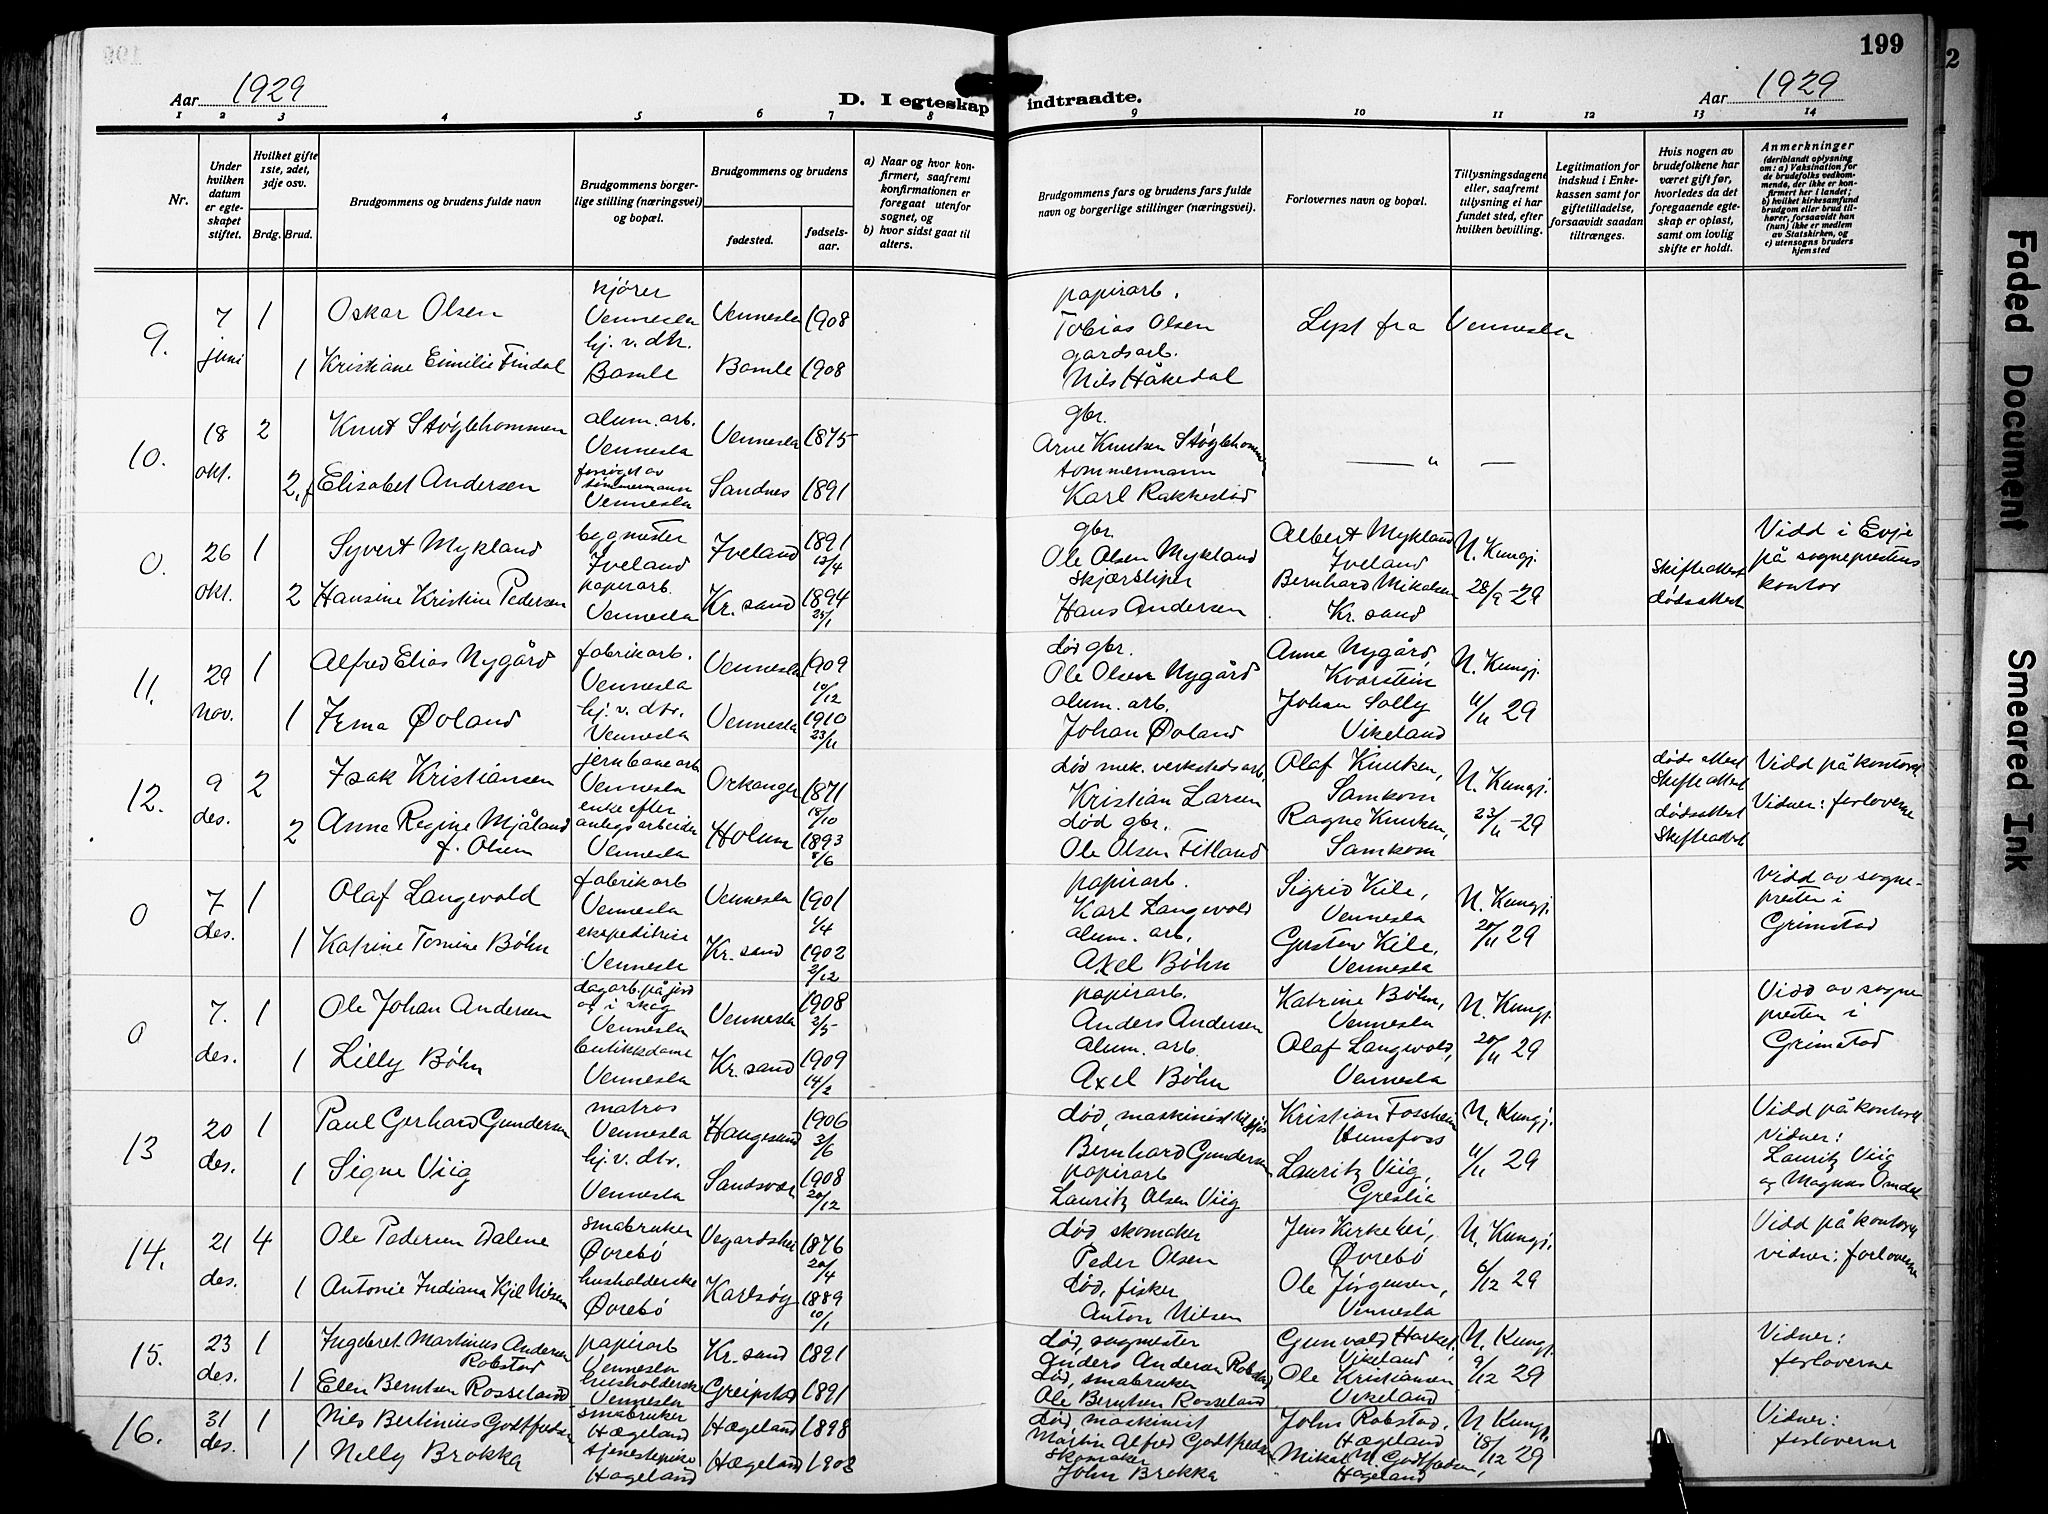 199
Aar 1929
D. I egteskap indtraadte.
Aar 1929
1 2 3 4 5 6 7 8 9 10 11 12 13 14
Nr.
Under hvilken datum er egteskapet stiftet.
Hvilket gifte 1ste, 2det, 3dje osv.
Brdg. Brud.
Brudgommens og brudens fulde navn
Brudgommens borgerlige stilling (næringsvei) og bopæl.
Brudgommens og brudens
fødested.
fødselsaar.
a) Naar og hvor konfirmert, saafremt konfirmationen er foregaat utenfor sognet, og
b) hvor sidst gaat til alters.
Brudgommens fars og brudens fars fulde navn og borgerlige stillinger (næringsvei).
Forlovernes navn og bopæl.
Tillysningsdagene eller, saafremt tillysning ei har fundet sted, efter hvilken bevilling.
Legitimation for indskud i Enkekassen samt for giftetilladelse, forsaavidt saadan tiltrænges.
Hvis nogen av brudefolkene har været gift før, hvorledes da det foregaaende egteskap er opløst, samt om lovlig skifte er holdt.
Anmerkninger (deriblandt oplysning om: a) Vaksination for de brudefolks vedkommende, der ikke er konfirmert her i landet; b) hvilket kirkesamfund brudgom eller brud tilhører, forsaavidt han (hun) ikke er medlem av Statskirken, og c) utensogns bruders hjemsted
9. 7 juni 1 Oskar Olsen kjører Vennesla Vennesla 1908 papirarb. Tobias Olsen Lyst fra Vennesla
1 Kristiane Emilie Findal hj. v. dtr. Bamle Bamle 1908 gardsarb. Nils Håkedal
10. 18 okt. 2 Knut Støylehommen alum. arb. Vennesla Vennesla 1875 gbr. Arne Knutsen Støylehommen — " —
2, f Elisabet Andersen forsørget av tømmermann Vennesla Sandnes 1891 tommermann Karl Rakkestad
0. 26 okt. 1 Syvert Mykland bygmester Iveland Iveland 1891 12/4 gbr. Ole Olsen Mykland Albert Mykland Iveland N. Kungj. 28/9-29 Skifteattest dødsattest Vidd i Evje på sogneprestens kontor
2 Hansine Kristine Pedersen papirarb. Vennesla Kr. sand 1894 25/1 skjærsliper Hans Andersen Bernhard Mikalsen Kr. sand
11. 29 nov. 1 Alfred Elias Nygård fabrikarb. Vennesla Vennesla 1909 10/12 død gbr. Ole Olsen Nygård Anne Nygård, Kvarstein N. Kungj. 11/11 29
1 Irma Øvland hj. v. dtr. Vennesla Vennesla 1910 23/11 alum. arb. Johan Øvland Johan Solly Vikeland
12. 9 des. 2 Isak Kristiansen jernbanearb Vennesla Orkanger 1871 18/10 død mek. verkstedsarb. Kristian Larsen Olaf Knutsen, Samkom N. Kungj. 23/11-29 dødsattest Skifteattest Vidd på kontoret
2 Anne Regine Mjåland f. Olsen enke efter anlegsarbeider Vennesla Holum 1893 8/6 død gbr. Ole Olsen Fitland Ragna Knutsen, Samkom dødsattest Skifteattest Vidner: forloverne
0 7 des. 1 Olaf Langevold fabrikarb Vennesla Vennesla 1901 1/4 papirarb. Karl Langevold Sigrid Kile, Vennesla N. Kungj. 20/11 29 Vidd av sognepresten i Grimstad
1 Katrine Tomine Bøhn ekspeditrise Vennesla Kr. sand 1902 2/12 alum. arb. Axel Bøhn Gustav Kile, Vennesla
0 7. des. 1 Ole Johan Andersen dagarb. på jord og i skog Vennesla Vennesla 1908 2/5 papirarb. Anders Andersen Katrine Bøhn, Vennesla N. Kungj. 20/11 29 Vidd av sognepresten i Grimstad
1 Lilly Bøhn butikkdame Vennesla Kr. sand 1909 14/2 alum. arb. Axel Bøhn Olaf Langevold, Vennesla
13 20 des. 1 Paul Gerhard Gundersen matros Vennesla Haugesund 1906 3/6 død, maskinist til sjøs Bernhard Gundersen Kristian Fossheim Hunsfoss N. Kungj. 11/11 29 Vidd på kontoret Vidner: Lauritz Viig og Magnus Omdal
1 Signe Viig hj. v. dtr. Vennesla Sandsvær 1908 20/12 papirarb Lauritz Olsen Viig Lauritz Viig, Greslia
14. 21 des. 4 Ole Pedersen Dalene småbruker Øvrebø Vegårdshei 1876 20/4 død skomaker Peder Olsen Jens Kirkebei, Øvrebø N. Kungj. 6/12 29 Vidd på kontoret vidner: forloverne
1 Antonie Indiana Kjil Nilsen husholderske Øvrebø Karlsøy 1889 10/1 død, fisker Anton Nilsen Ole Jørgensen, Vennesla
15. 23 des. 1 Ingebret Martinius Andersen Robstad papirarb Vennesla Kr. sand 1891 død, sagmester Anders Andersen Robstad Gunvald Harket, Vikeland, N. Kungj. 9/12 29 Vidner: forloverne
1 Elen Berntsen Rosseland husholderske Vennesla Greipstad 1891 død, småbruker Ole Berntsen Rosseland Ole Kristiansen Vikeland
16. 31 des. 1 Nils Bertinius Godtfredsen småbruker Hægeland Hægeland 1898 død, maskinist Martin Alfred Godtfredsen John Robstad, Hægeland N Kungj. 18/12 29 Vidner: forloverne
1 Nelly Brokka tjenestepike Hægeland Hægeland 1903 skomaker John Brokka Mikal N Godtfredsen, Hægeland
2
Faded Document
Smeared Ink